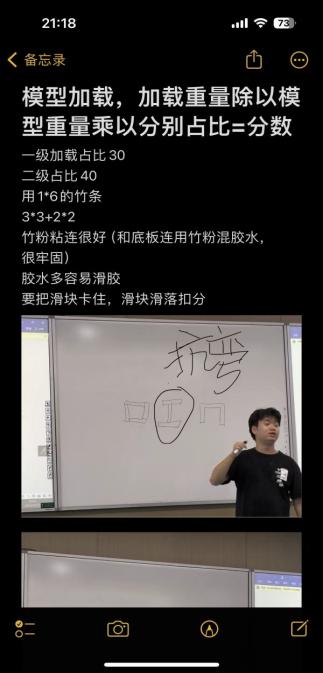 21:18
73
备忘录
模型加载，加载重量除以模
型重量乘以分别占比=分数
一级加载占比30
二级占比40
用1*6的竹条
3*3+2*2
竹粉粘连很好（和底板连用竹粉混胶水，
很牢固）
胶水多容易滑胶
要把滑块卡住，滑块滑落扣分
抗弯